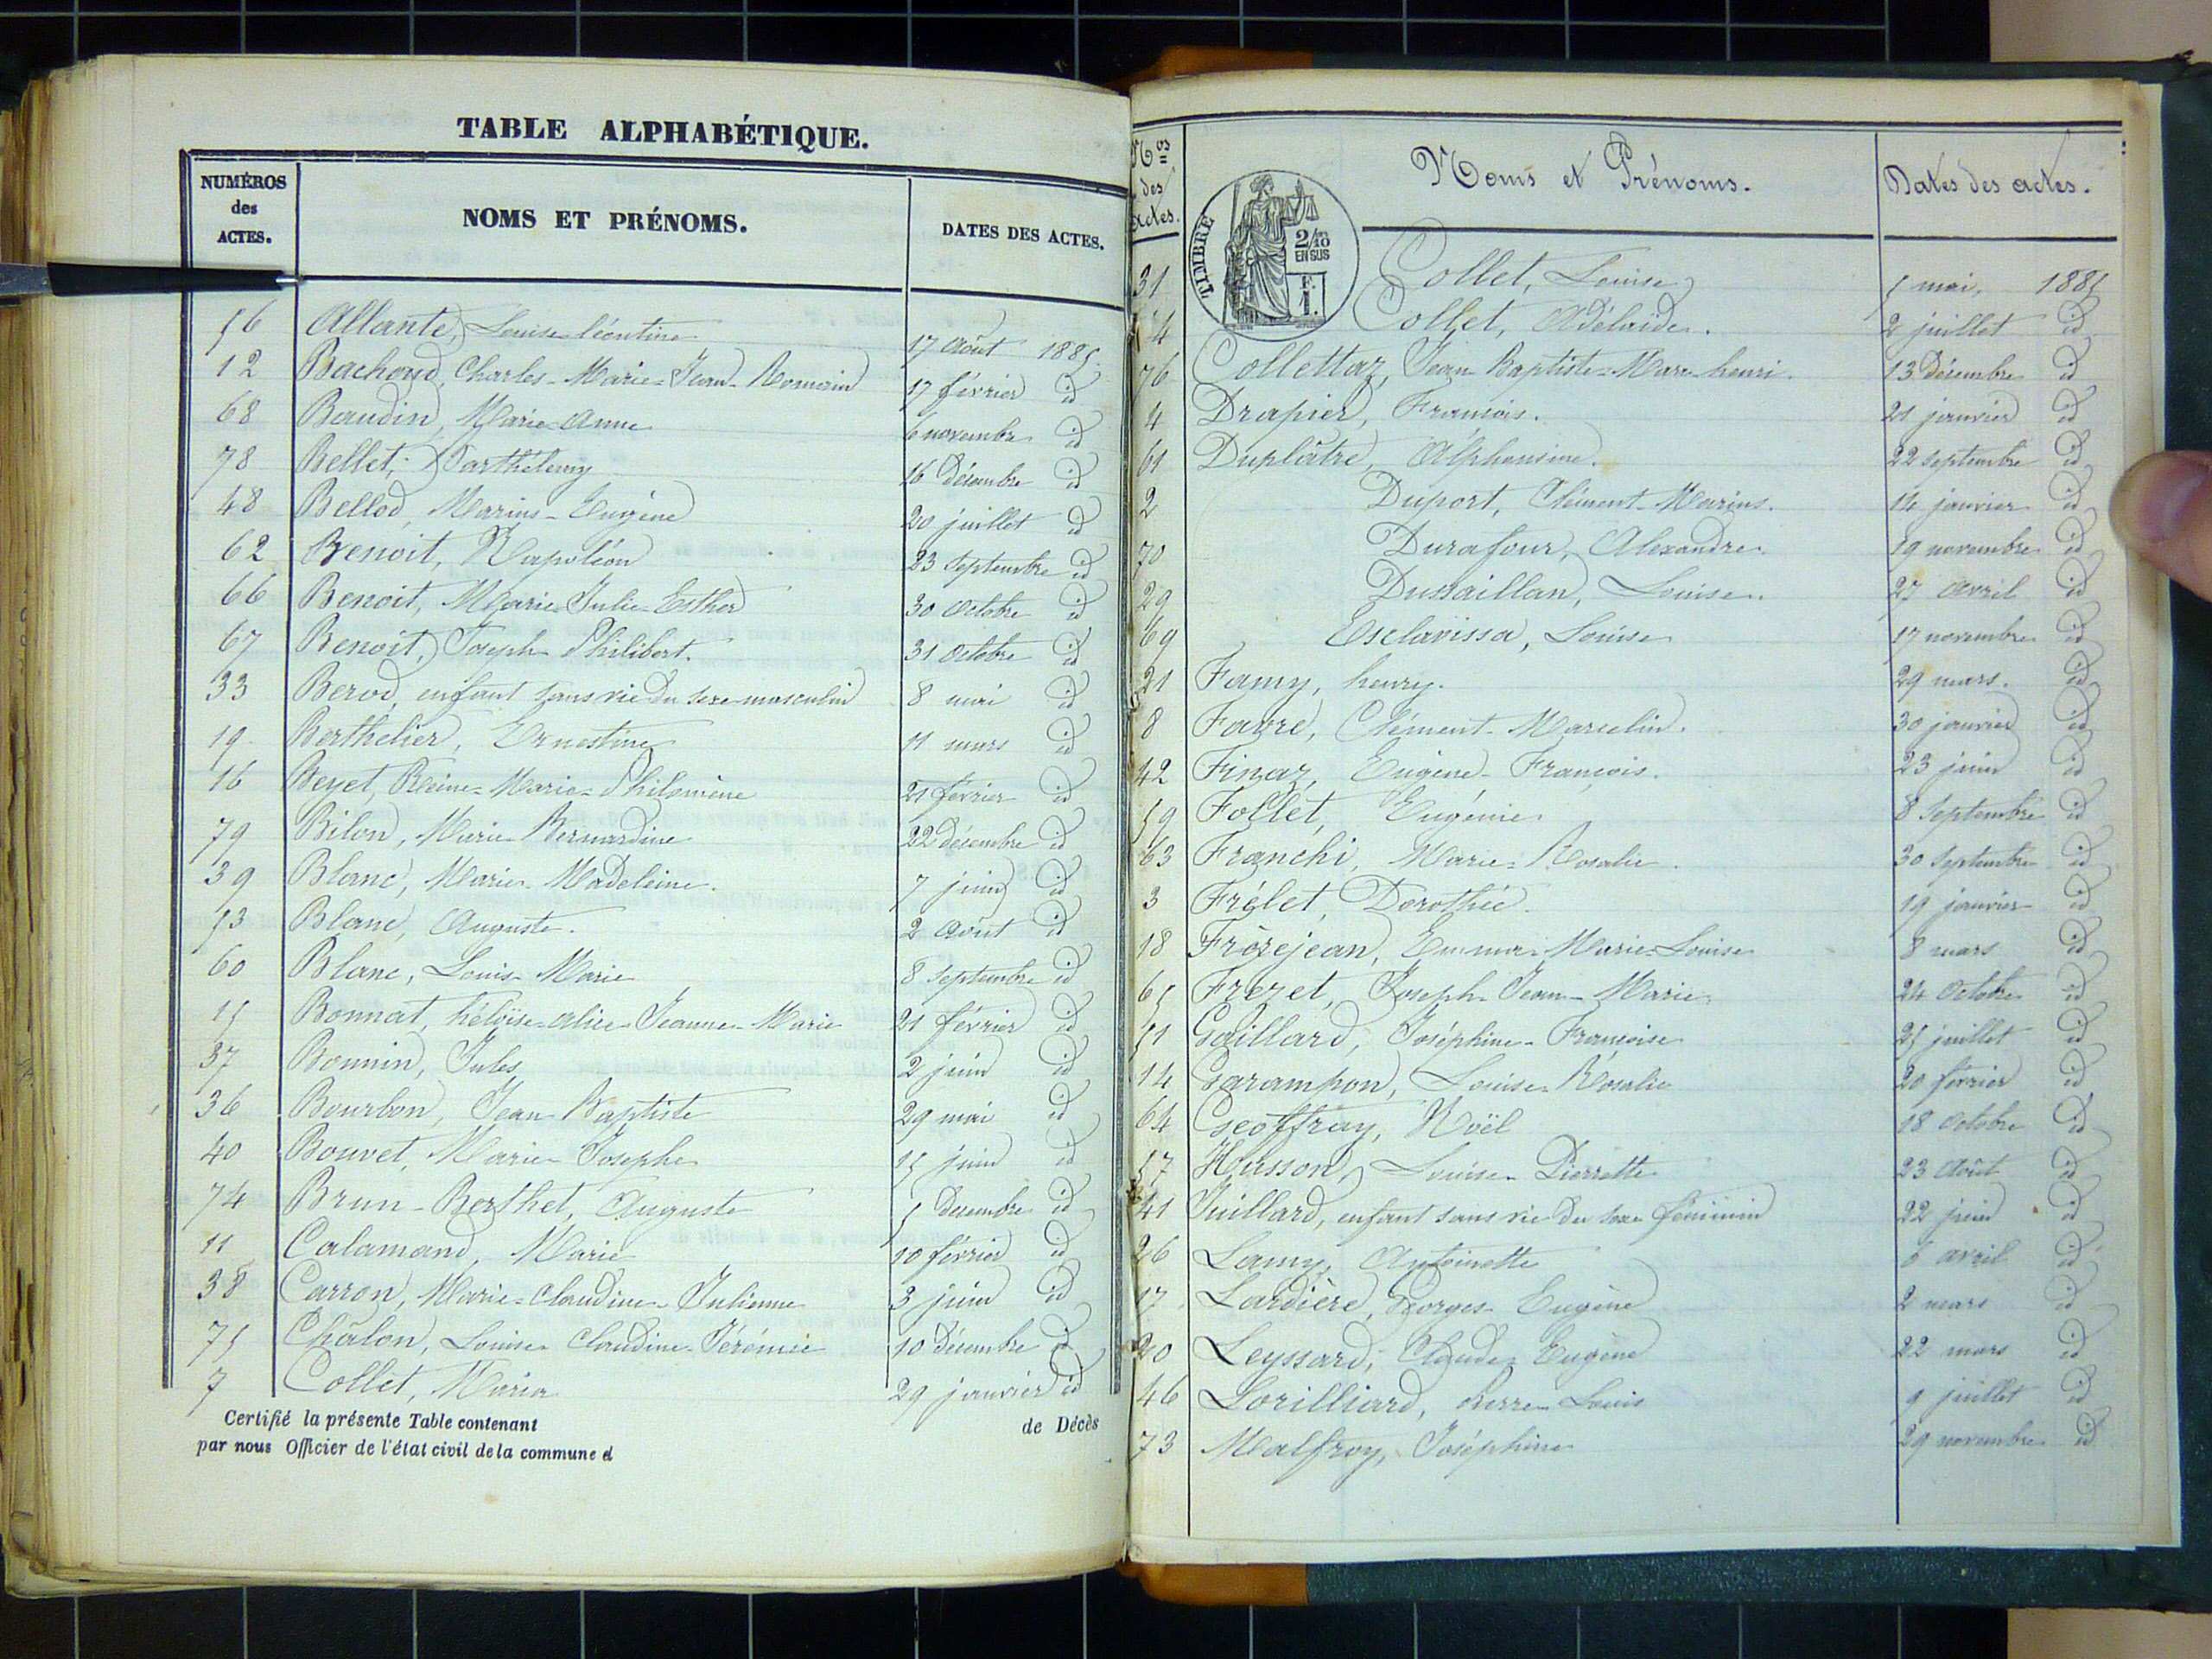 TABLE ALPHABÉTIQUE.
NUMÉROS des ACTES.
NOMS ET PRÉNOMS.
DATES DES ACTES.
56 Allante, Louise léontine 17 Août 1885
12 Bachoud, Charles-Marie-Jean-Romain 17 février id
68 Baudin, Marie Anne 6 novembre id
78 Bellet, Barthélemy 16 Décembre id
48 Bellod, Marius-Eugène 20 juillet id
62 Benoit, Napoléon 23 Septembre id
66 Benoit, Marie Julie Esther 30 Octobre id
67 Benoit, Joseph Philibert. 31 Octobre id
33 Berod, enfant sans vie du sexe masculin 8 mai id
19 Berthelier, Ernestine 11 mars id
16 Beyet, Reine-Marie-Philomène 21 février id
79 Bilon, Marie Bernardine 22 décembre id
39 Blanc, Marie-Madeleine. 7 juin id
53 Blanc, Auguste. 2 Août id
60 Blanc, Louis-Marie 8 Septembre id
15 Bonnat, héloïse-alice-Jeanne-Marie 21 février id
37 Bonnin, Jules 2 juin id
36 Bourbon, Jean Baptiste 29 mai id
40 Bouvet, Marie Josephe 15 juin id
74 Brun-Berthet, Auguste 5 Décembre id
11 Calamand, Marie 10 février id
38 Carron, Marie-Claudine-Julienne 3 juin id
75 Châlon, Louise Claudine Jérémie 10 Décembre id
7 Collet, Maria 29 janvier id
Certifié la présente Table contenant de Décès
par nous Officier de l'état civil de la commune d
Nos des actes.
Noms et Prénoms.
Dates des actes.
TIMBRE
2/10
EN SUS
F.
1.
31 Collet, Louise 5 mai, 1885
44 Collet, Adélaïde. 2 juillet id
76 Collettaz, Jean Baptiste-Marc-henri. 13 Décembre id
4 Drapier, François. 21 janvier id
61 Duplâtre, Alphonsine. 22 septembre id
2 Duport, Clément-Marius. 14 janvier id
70 Durafour, Alexandre. 19 novembre id
29 Dussaillan, Louise. 27 avril id
69 Esclavissa, Louise 17 novembre id
21 Famy, henry. 29 mars. id
8 Favre, Clément-Marcelin. 30 janvier id
42 Finaz, Eugène-François. 23 juin id
59 Follet, Eugénie. 8 Septembre id
63 Franchi, Marie-Rosalie. 30 Septembre id
3 Frélet, Dorothée. 19 janvier id
18 Frôsejean, Emma-Marie-Louise 8 mars id
65 Frezet, Joseph-Jean-Marie 24 Octobre id
51 Gaillard, Joséphine-Françoise 25 juillet id
14 Garampon, Louise-Rosalie 20 février id
64 Geoffray, Noël 18 Octobre id
57 Husson, Louise-Pierrette 23 Août id
41 Juillard, enfant sans vie du sexe féminin 22 juin id
26 Lamy, Antoinette 6 avril id
17 Lardière, Georges-Eugène 2 mars id
20 Leyssard, Claude Eugène 22 mars id
46 Lorilliard, Pierre-Louis 9 juillet id
73 Malfroy, Joséphine 29 novembre id